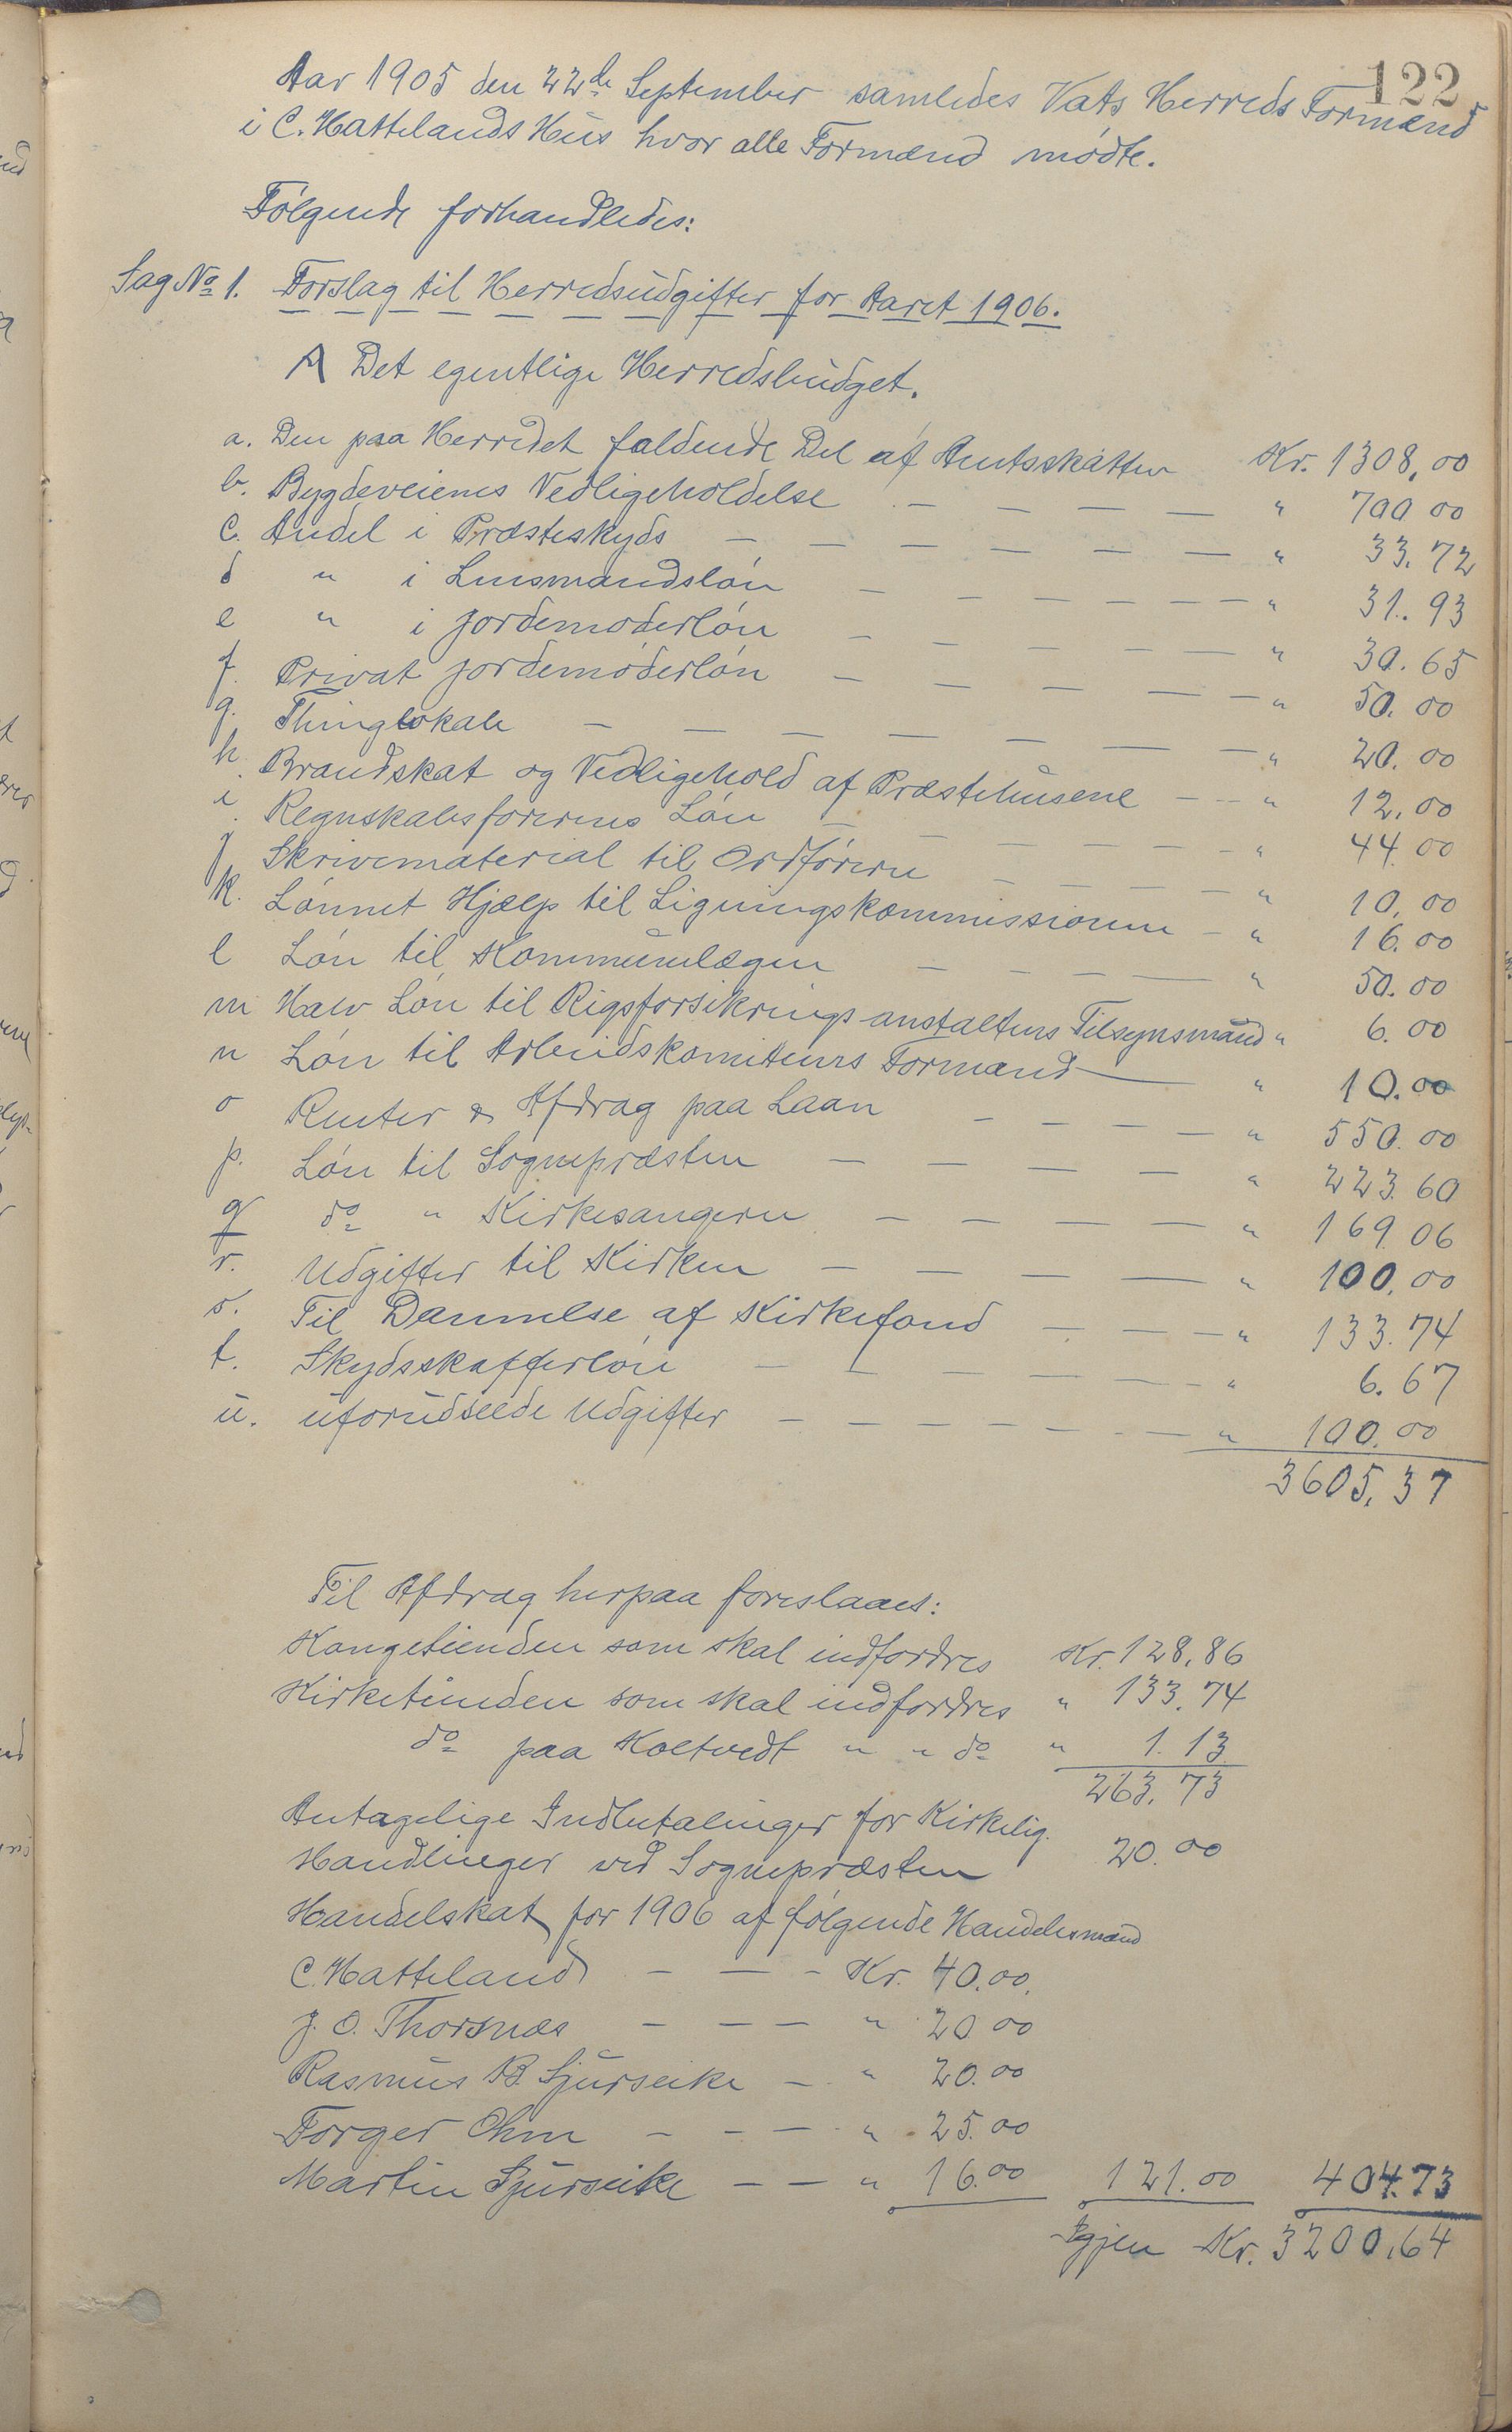 122
Aar 1905 den 22de September samledes Vats Herreds Formænd
i C. Hattelands Hus hvor alle Formænd mødte.
Følgende forhandledes:
Sag No 1. Forslag til Herredsudgifter for Aaret 1906.
A Det egentlige Herredsbudget.
a. Den paa Herredet faldende Del af Amtsskatten Kr. 1308,00
b. Bygdeveienes Vedligeholdelse — — — — " 700 00
c. Andel i Præsteskyds — — — — — — " 33.72
d " i Lensmandsløn — — — — — — " 31.93
e " i Jordemoderløn — — — — — " 30.65
f. Privat Jordemøderløn — — — — — " 50.00
g. Thinglokale — — — — — — — " 20.00
h. Brandskat og Vedligehold af Præstehusene — — " 12.00
i. Regnskabsførerens Løn — — — — — " 44.00
j Skrivemateriał til Ordføreren — — — — " 10.00
k. Lønnet Hjælp til Ligningskommissionen — " 16.00
l Løn til Kommunelægen — — — — " 50.00
m Halv Løn til Rigsforsikringsanstaltens Tilsynsmand " 6.00
n Løn til Arbeidskomiteens Formand — " 10.00
o Renter & Afdrag paa Laan — — — — " 550.00
p. Løn til Sognepræsten — — — — " 223.60
q do " Kirkesangeren — — — — " 169.06
r. Udgifter til Kirken — — — — " 100.00
s. Til Dannelse af Kirkefond — — — " 133.74
t. Skydsskafferløn — — — — — — " 6.67
u. uforudseede Udgifter — — — — — — — " 100.00
3605,37
Til Afdrag herpaa foreslaaes:
Kongetienden som skal indfordres Kr. 128,86
Kirketienden som skal indfordres " 133.74
do paa Koltvedt " " do " 1.13
263.73
Antagelige Indbetalinger for Kirkelig.
Handlinger ved Sognepræsten 20.00
Handelskat for 1906 af følgende Handelsmænd
C. Hatteland — — - Kr. 40.00.
J. O. Thorsnæs — — — " 20 00
Rasmus B. Sjurseike — " 20.00
Torger Ohm — — — " 25.00
Martin Sjurseike — — " 16.00 121.00 404.73
Igjen Kr. 3200,64